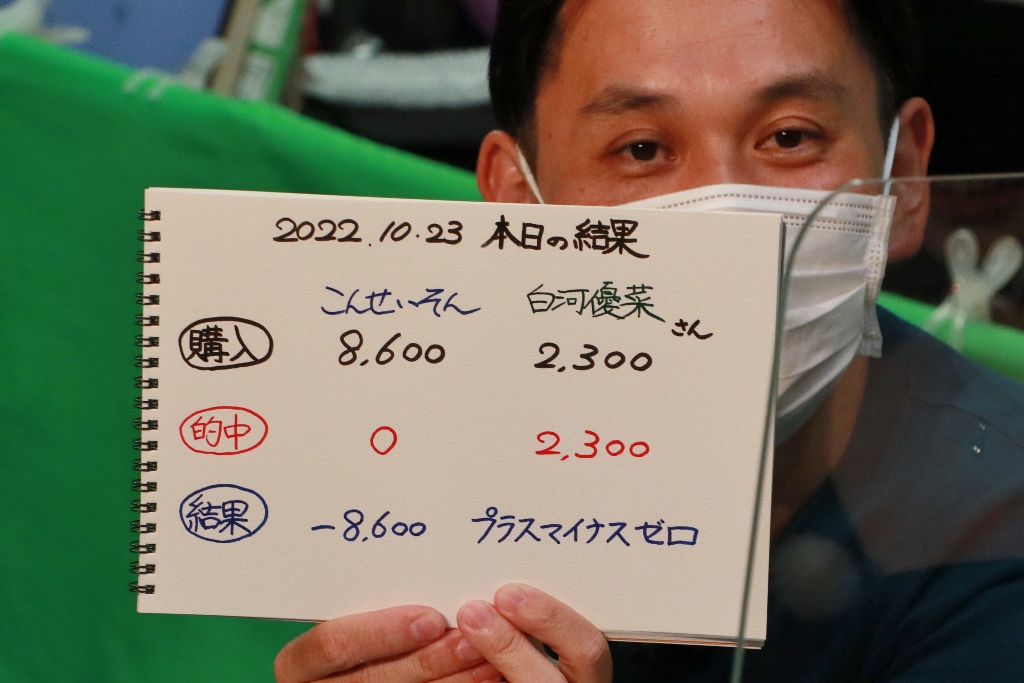 2022.10.23 本日の結果
こんせいそん 白河優菜さん
購入 8,600 2,300
的中 0 2,300
結果 -8,600 プラスマイナスゼロ